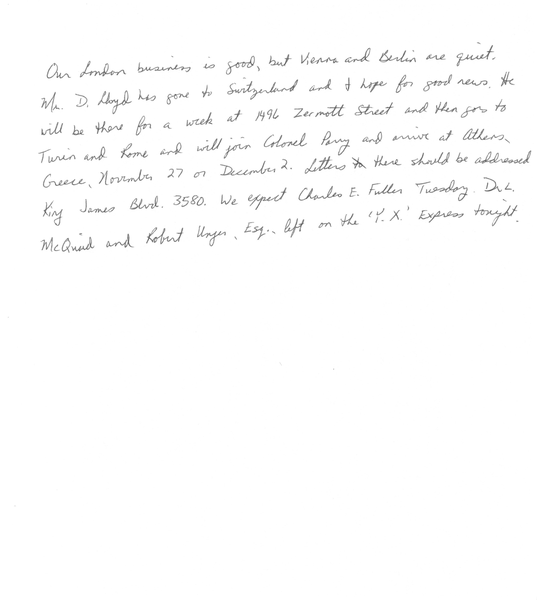 Our London business is good, but Vienna and Berlin are quiet.
Mr. D. Lloyd has gone to Switzerland and I hope for good news. He
will be there for a week at 1496 Zermott Street and then goes to
Turin and Rome and will join Colonel Parry and arrive at Athens,
Greece, November 27 or December 2. Letters there should be addressed
King James Blvd. 3580. We expect Charles E. Fuller Tuesday. Dr. L.
McQuaid and Robert Unger, Esq., left on the 'Y. X.' Express tonight.